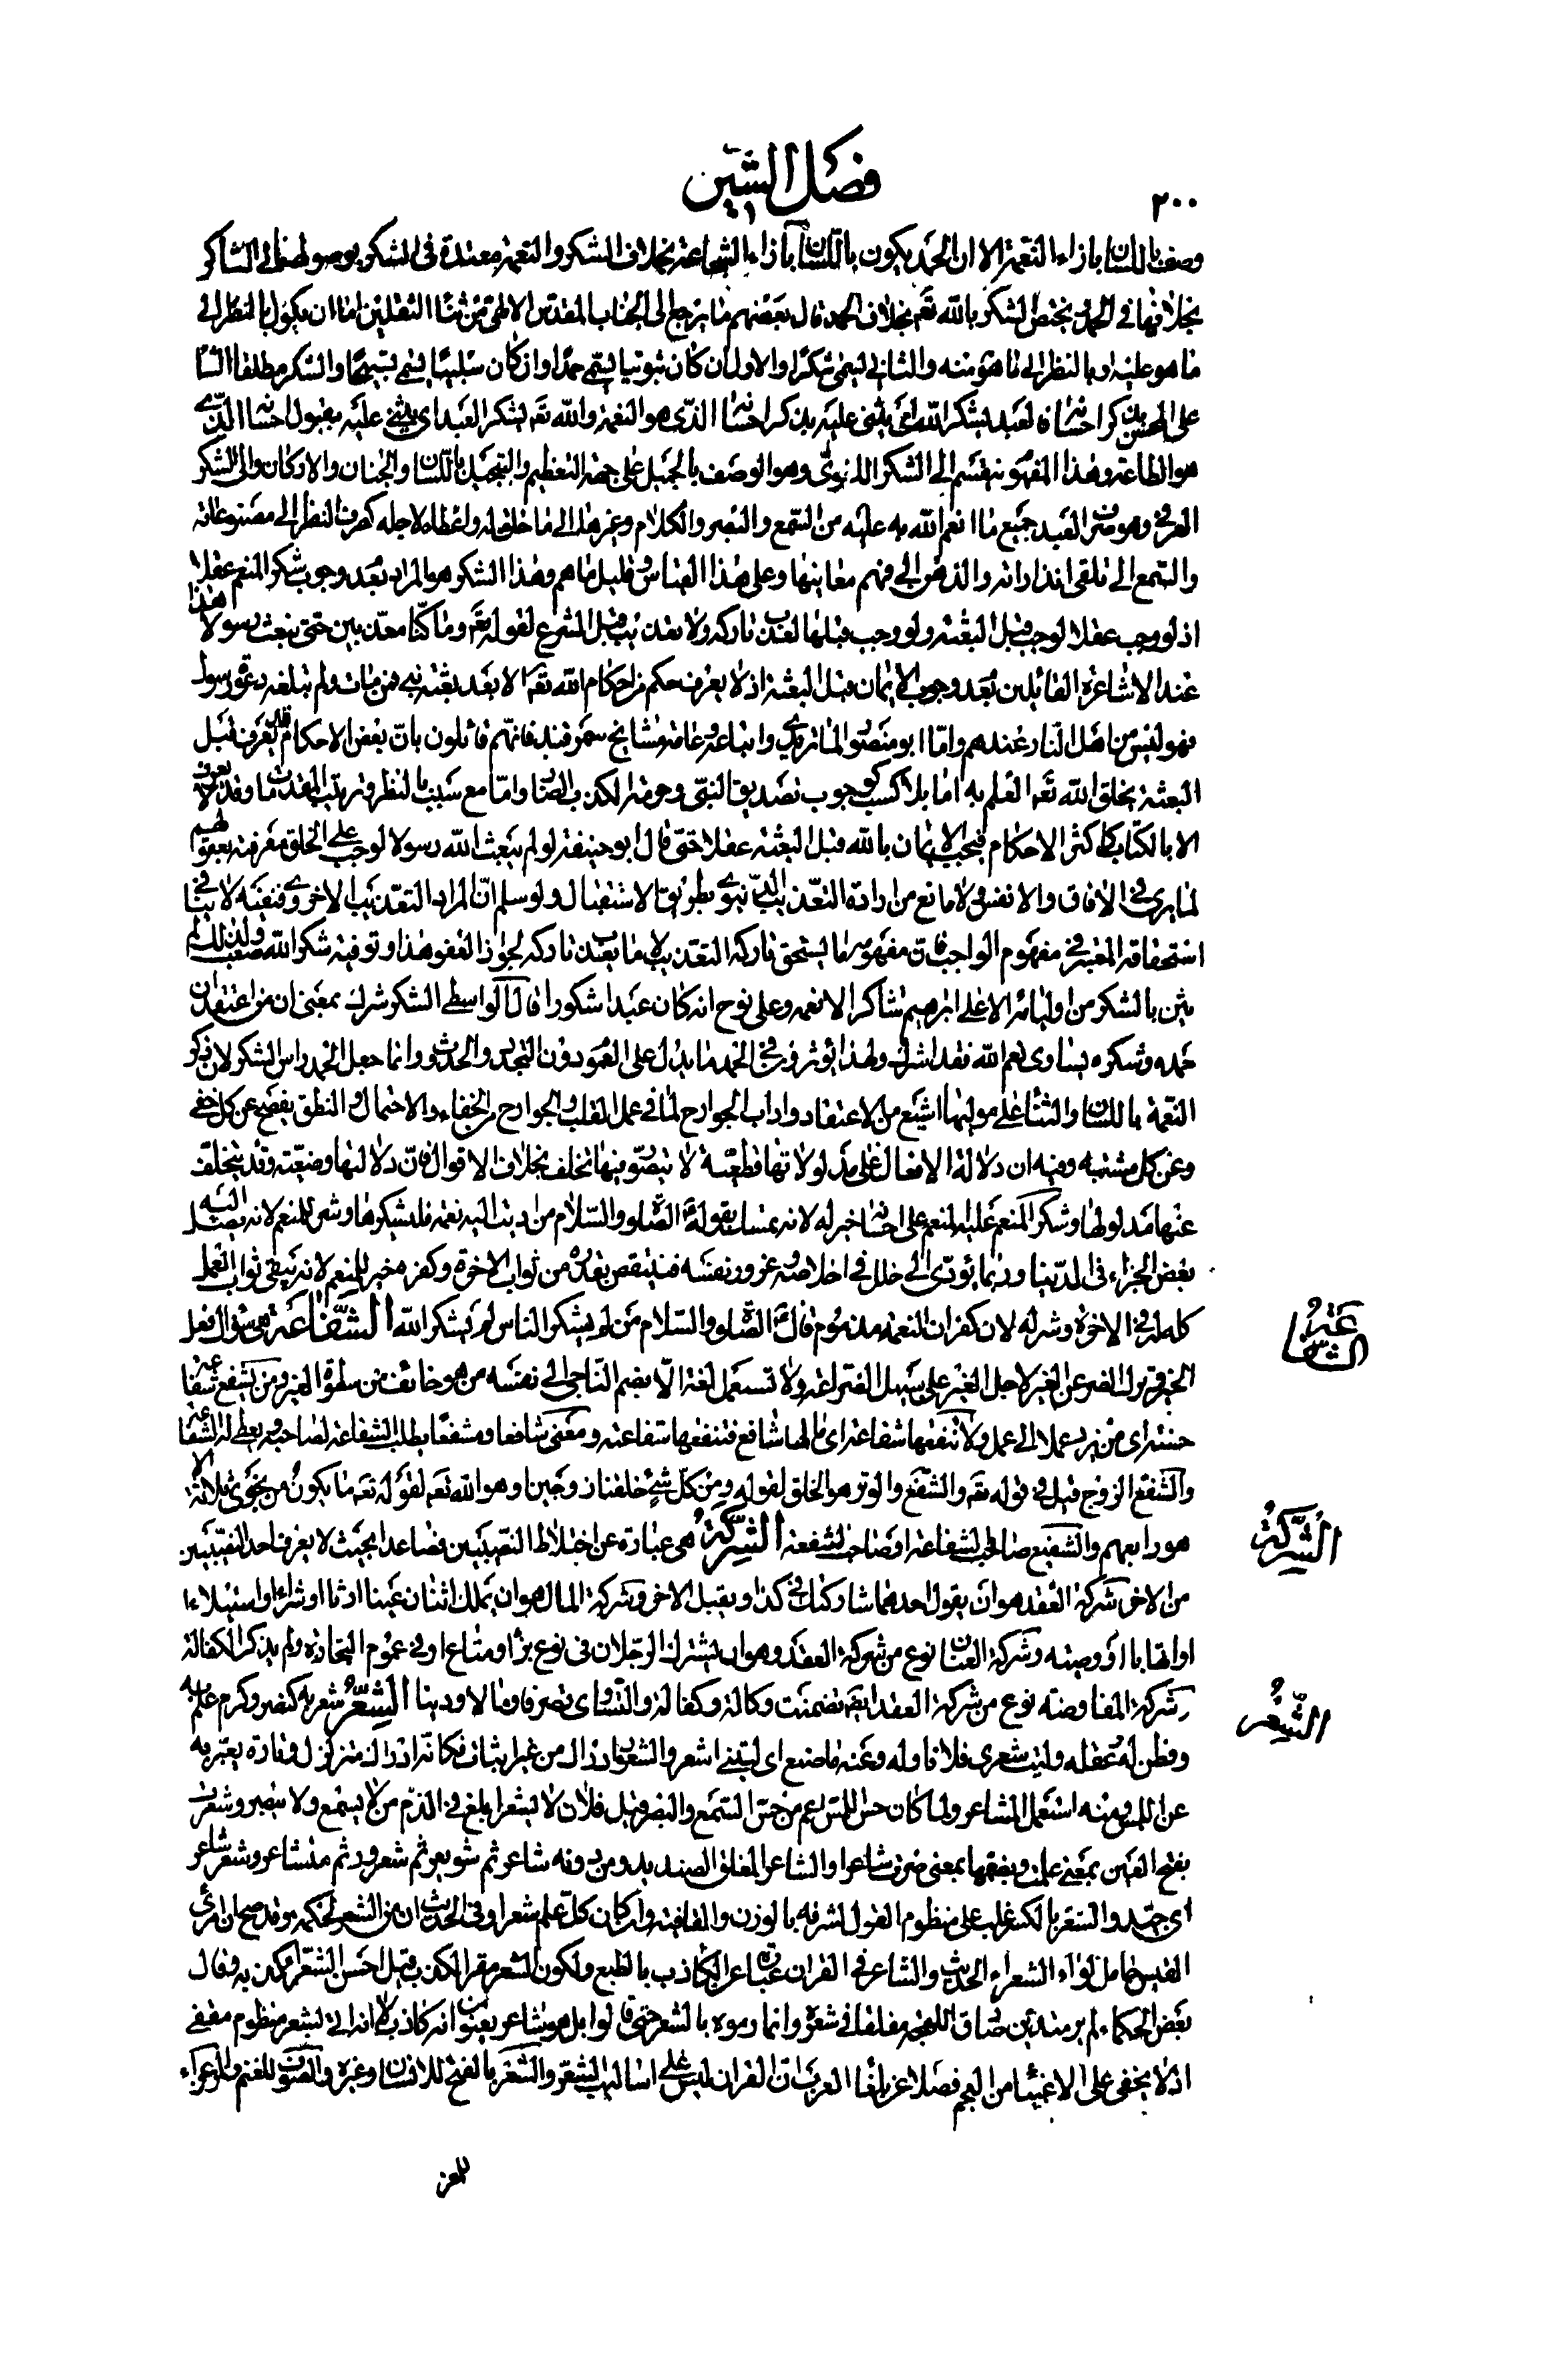 ٢٠٠
فصل الشين
وصف باللسان بازاء النعمة الا ان الحمد يكون باللسان بازاء الشجاعة بخلاف الشكر والنعمة مقيدة في الشكر بوصولها الى الشاكر
بخلافها في الحمد ويختص الشكر بالله تعه بخلاف الحمد قال بعضهم ما يرجع الى الجناب المقدس الالهى من ثناء الثقلين اما ان يكون بالنظر الى
ما هو عليه او بالنظر الى ما هو منه والثانى يسمى شكرا والاول ان كان ثبوتيا يسمى حمدا وان كان سلبيا يسمى تسبيحا والشكر مطلقا الثناء
على المحسن بذكر احسانه فالعبد يشكر الله اى يثنى عليه بذكر احسانه الذى هو النعمة والله تعه يشكر العبد اى يثنى عليه بقبول احسانه الذى
هو الطاعة وهذا المفهوم ينقسم الى الشكر اللغوى وهو الوصف بالجميل على جهة التعظيم والتبجيل باللسان والجنان والاركان والى الشكر
العرفى وهو صرف العبد جميع ما انعم الله به عليه من السمع والبصر والكلام وغيرها الى ما خلق له واعطاه لاجله كصرف النظر الى مصنوعاته
والسمع الى تلقى انذاراته والذهن الى فهم معانيها وعلى هذا القياس وقليل ما هم وهذا الشكر هو المراد بعدم وجوب شكر المنعم عقلا
اذ لو وجب عقلا لوجب قبل البعثة ولو وجب قبلها لعذب تاركه ولا تعذيب قبل الشرع لقوله تعه وما كنا معذبين حتى نبعث رسولا هذا
عند الاشاعرة القائلين بعدم وجوب الايمان قبل البعثة اذ لا يعرف حكم من احكام الله تعه الا بعد بعثة نبى فمن مات ولم تبلغه دعوة رسول
فهو ليس من اهل النار عندهم واما ابو منصور الماتريدى واتباعه وعامة مشايخ سمرقند فانهم قائلون بان بعض الاحكام قد يعرف قبل
البعثة بخلق الله تعه العلم به اما بلا كسب كوجوب تصديق النبى وحرمة الكذب الضار واما مع كسب بالنظر وترتيب المقدمات وقد لا يعرف
الا بالكتاب كاكثر الاحكام فيجب الايمان بالله قبل البعثة عقلا حتى قال ابو حنيفة لو لم يبعث الله رسولا لوجب على الخلق معرفته بعقولهم
لما يرى فى الآفاق والانفس لا مانع من ارادة التعذيب الدنيوى بطريق الاستئصال ولو سلم ان المراد التعذيب الاخروى فنفيه لا ينافى
استحقاقه المعتبر فى مفهوم الواجب فان مفهومه ما يستحق تاركه التعذيب لا ما يعذب تاركه لجواز العفو هذا وتوفية شكر الله صعب ولذلك لم
يثن بالشكر من اوليائه الا على ابرهيم شاكرا لانعمه وعلى نوح انه كان عبدا شكورا قال الواسطى الشكر شرك بمعنى ان من اعتقد ان
حمده وشكره يساوى نعم الله فقد اشرك ولهذا يؤثر فى الحمد ما يدل على العموم دون التجدد والحدوث وانما جعل الحمد راس الشكر لان ذكر
النعمة باللسان والثناء على موليها اشيع من الاعتقاد وآداب الجوارح لما فى عمل القلب والجوارح من الخفاء والاحتمال والنطق يفصح عن كل خفى
وعن كل مشتبه وفيه ان دلالة الافعال على مدلولاتها قطعية لا يتصور فيها تخلف بخلاف الاقوال فان دلالتها وضعية وقد يتخلف
عنها مدلولها وشكر المنعم عليه المنعم على احسانه خير له لانه تمسك بقوله الصلاو والسلام من اديت اليه نعمة فليشكرها وشر للمنعم لانه يصل اليه
بعض الجزاء فى الدنيا وربما يؤدى الى خلل فى اخلاصه وغرور نفسه فينتقص بقدره من ثواب الاخرة وكفره خير للمنعم لانه يبقى ثواب العمل
كله له فى الاخرة وشر له لان كفران النعمة مذموم قال الصلاو والسلام من لم يشكر الناس لم يشكر الله الشفاعة هى سؤال فعل
الخير وترك الضر عن الغير لاجل الغير على سبيل الضراعة ولا تستعمل لغة الا بضم الناجى الى نفسه من هو خائف من سطوة الغير ومن يشفع شفاعة
حسنة اى من يزد عملا الى عمل ولا تنفعها شفاعة اى ما لها شافع فتنفعها شفاعته ومعنى شافعا ومشفعا يطلب الشفاعة لصاحبه ويعطى له الشفاعة
والشفع الزوج قيل فى قوله تعه والشفع والوتر هو الخلق لقوله ومن كل شئ خلقنا زوجين او هو الله تعه لقوله تعه ما يكون من نجوى ثلاثة الا
هو رابعهم والشفيع صاحب الشفاعة او صاحب الشفعة الشركة هى عبارة عن اختلاط النصيبين فصاعدا بحيث لا يعرف احد النصيبين
من الاخر شركة العقد هو ان يقول احدهما شاركتك فى كذا ويقبل الاخر وشركة المال هو ان يملك اثنان عينا ارثا او شراء او استيلاء
او اتهابا او وصية وشركة العنان نوع من شركة العقد وهو ان يشترك الرجلان فى نوع بز او متاع او فى عموم التجارة ولم يذكر الكفالة
وشركة المفاوضة نوع من شركة العقد ايضا تضمنت وكالة وكفالة والتساوى تصرفا ومالا ودينا الشعر شعر به كنصر وكرم علم به
وفطن له وعقله وليت شعرى فلانا وله وعنه ما صنع اى ليتنى اشعر
عن اللمس ومنه استعمل المشاعر ولما كان حس اللمس اعم من حس السمع والبصر قيل فلان لا يشعر ابلغ فى الذم من لا يسمع ولا يبصر وشعرت
بفتح العين بمعنى علمت وبضمها بمعنى صرت شاعرا والشاعر المفلق الصنديد ومن دونه شاعر ثم شويعر ثم شعرور ثم متشاعر وشعر شاعر
اى جيد والشعر بالكسر غلب على منظوم القول لشرفه بالوزن والقافية وان كان كل علم شعرا وفى الحديث ان من الشعر لحكمة وقد صح ان امرئ
القيس حامل لواء الشعراء الحديث والشاعر فى القران عبارة عن الكاذب بالطبع ولكون الشعر مقر الكذب قيل احسن الشعر اكذبه وقال
بعض الحكماء لم ير متدين صادق اللهجة مفلقا فى شعره وانما رموه بالشعر حتى قالوا بل هو شاعر يعنون انه كاذب لا انه اتى بشعر منظوم مقفى
اذ لا يخفى على الاغبياء من العجم فضلا عن بلغاء العرب ان القران ليس على اساليب الشعر والشعر بالفتح للانسان وغيره والصوف للغنم
للمعز
الشفاعة
الشركة
الشعر